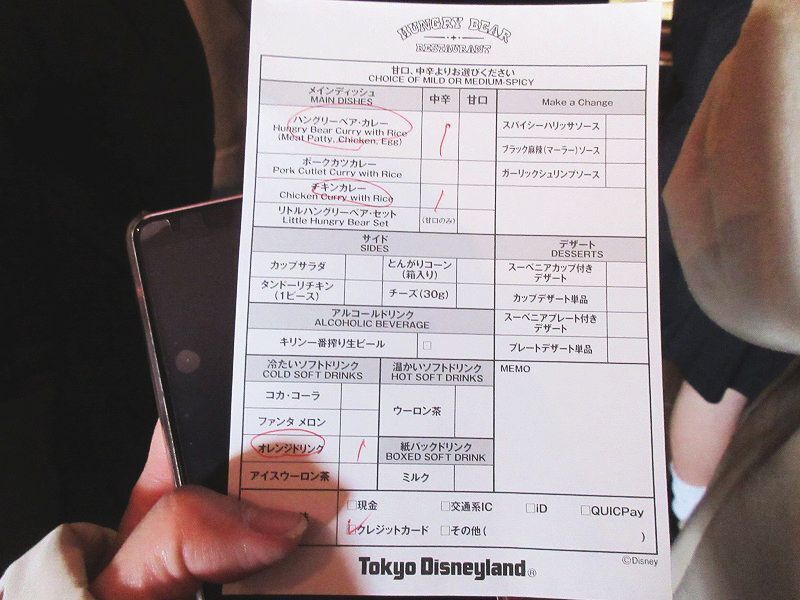 HUNGRY BEAR
RESTAURANT
甘口、中辛よりお選びください
CHOICE OF MILD OR MEDIUM-SPICY
メインディッシュ
MAIN DISHES
中辛
甘口
Make a Change
ハングリーベア・カレー
Hungry Bear Curry with Rice
(Meat Patty, Chicken, Egg)
スパイシーハリッサソース
ブラック麻辣(マーラー)ソース
ポークカツカレー
Pork Cutlet Curry with Rice
ガーリックシュリンプソース
チキンカレー
Chicken Curry with Rice
リトルハングリーベア・セット
Little Hungry Bear Set
(甘口のみ)
サイド
SIDES
デザート
DESSERTS
カップサラダ
とんがりコーン
(箱入り)
スーベニアカップ付き
デザート
タンドーリチキン
(1ピース)
チーズ(30g)
カップデザート単品
アルコールドリンク
ALCOHOLIC BEVERAGE
スーベニアプレート付き
デザート
キリン一番搾り生ビール
□
プレートデザート単品
冷たいソフトドリンク
COLD SOFT DRINKS
温かいソフトドリンク
HOT SOFT DRINKS
MEMO
コカ・コーラ
ウーロン茶
ファンタ メロン
オレンジドリンク
紙パックドリンク
BOXED SOFT DRINK
アイスウーロン茶
ミルク
□現金
□交通系IC
□iD
□QUICPay
□クレジットカード
□その他( )
Tokyo Disneyland®
©Disney